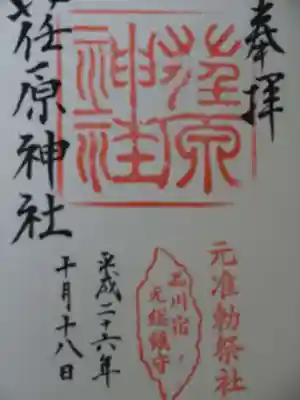 奉拝
元准勅祭社
荏原
神社
品川宿ノ
元総鎮守
平成二十六年
十月十八日
荏原神社